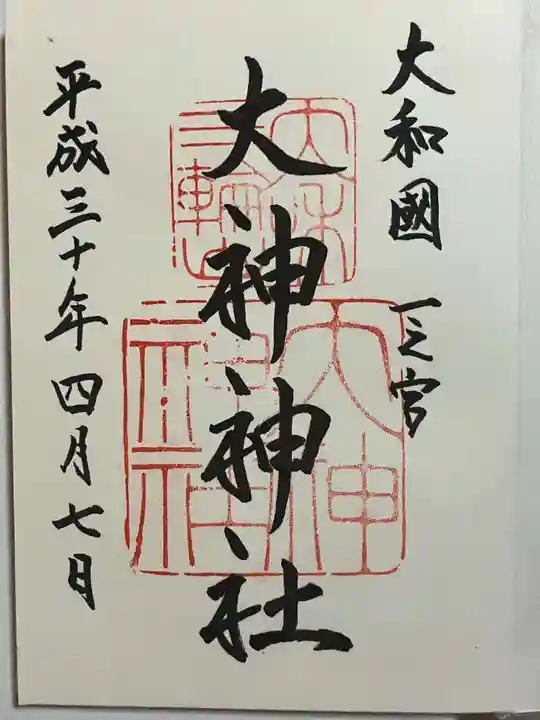 大和國 一之宮
大神神社
平成三十年四月七日
大神神社